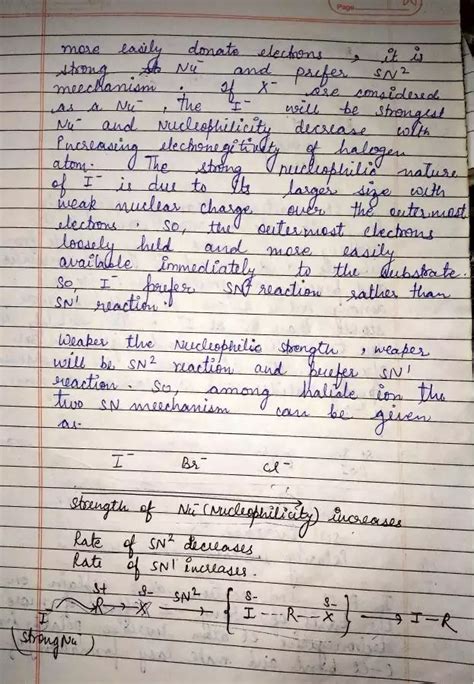 Page
more easily donate electrons, it is
strong Nu⁻ and prefer SN²
meechanism. If X⁻ are considered
as a Nu⁻, the I⁻ will be strongest
Nu⁻ and Nucleophilicity decrease with
Increasing electronegitivity of halogen
atom. The strong nucleophilic nature
of I⁻ is due to its larger size with
weak nuclear charge over the outermost
electrons. So, the outermost electrons
loosely held and more easily
available immediately to the substrate.
So, I⁻ prefer SN² reaction rather than
SN¹ reaction.
Weaker the Nucleophilic strength, weaker
will be SN² reaction and prefer SN¹
reaction. So, among halide ion the
two SN meechanism can be given
as-
I⁻ Br⁻ Cl⁻
Strength of Nu⁻ (Nucleophilicity) increases
Rate of SN² decreases
Rate of SN¹ increases.
I⁻ δ+ R → δ- X SN² → { δ- I --- R --- δ- X } → I-R
(Strong Nu⁻)